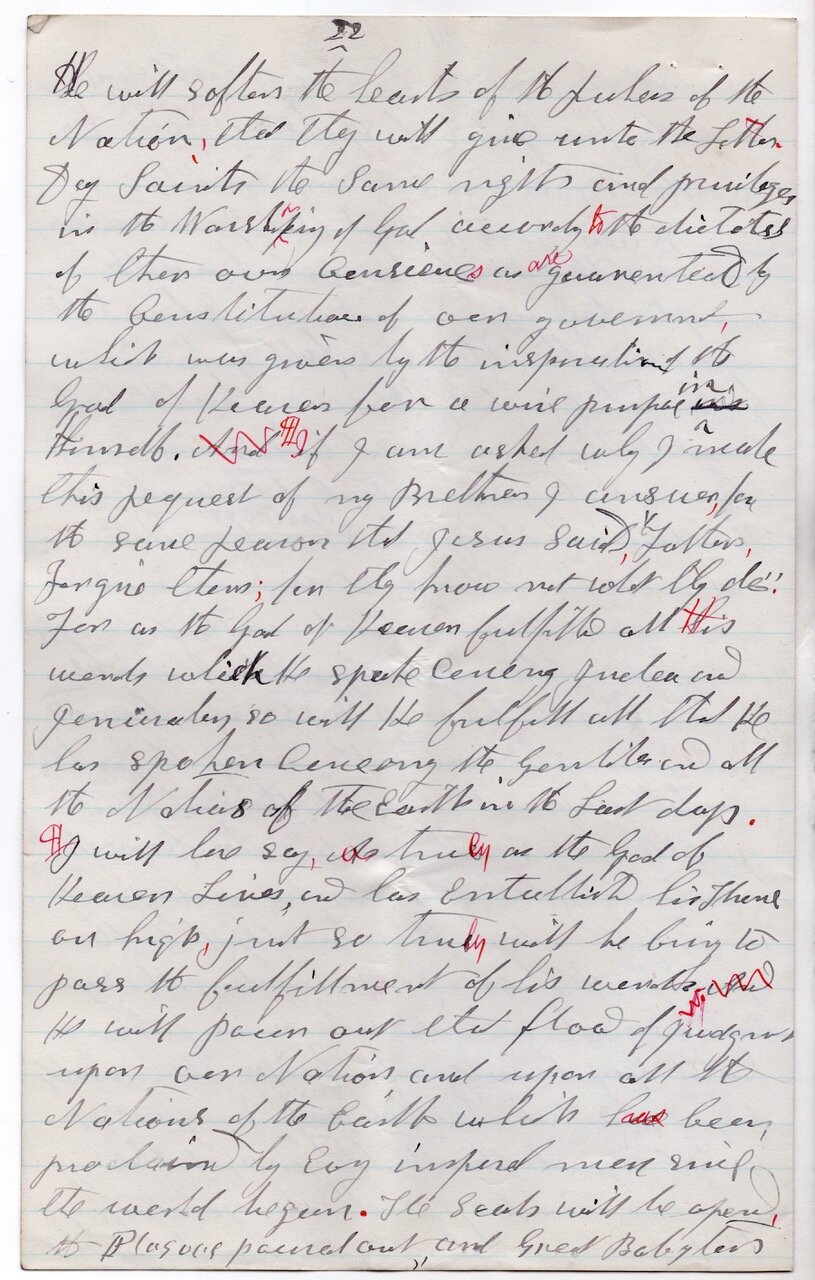 22
He will soften the hearts of the Rulers of the
Nation, that they will give unto the Latter
Day Saints the same rights and privileges
in the Worshiping of God according to the dictates
of their own Consciences as are guaranteed by
the Constitution of our government,
which was given by the inspiration of the
God of Heaven for a wise purpose in
Himself. And if I am asked why I make
this request of my Brethren I answer, for
the same reason that Jesus Said, "Father,
Forgive them; for they know not what they do".
For as the God of Heaven fulfilled all His
words which He spake Concerning Judea and
Jerusalem, so will He fulfill all that He
has spoken Concerning the Gentiles and all
the Nations of the Earth in the Last days.
I will here say, As truely as the God of
Heaven Lives, and has Established his Throne
on high, just so truely will he bring to
pass the fulfillment of his words, and
He will pour out that flood of Judgment
upon our Nation and upon all the
Nations of the Earth which has been
proclaimed by Evry inspired men since
the world began. The Seals will be opened,
the Plagues poured out, and Great Babylon